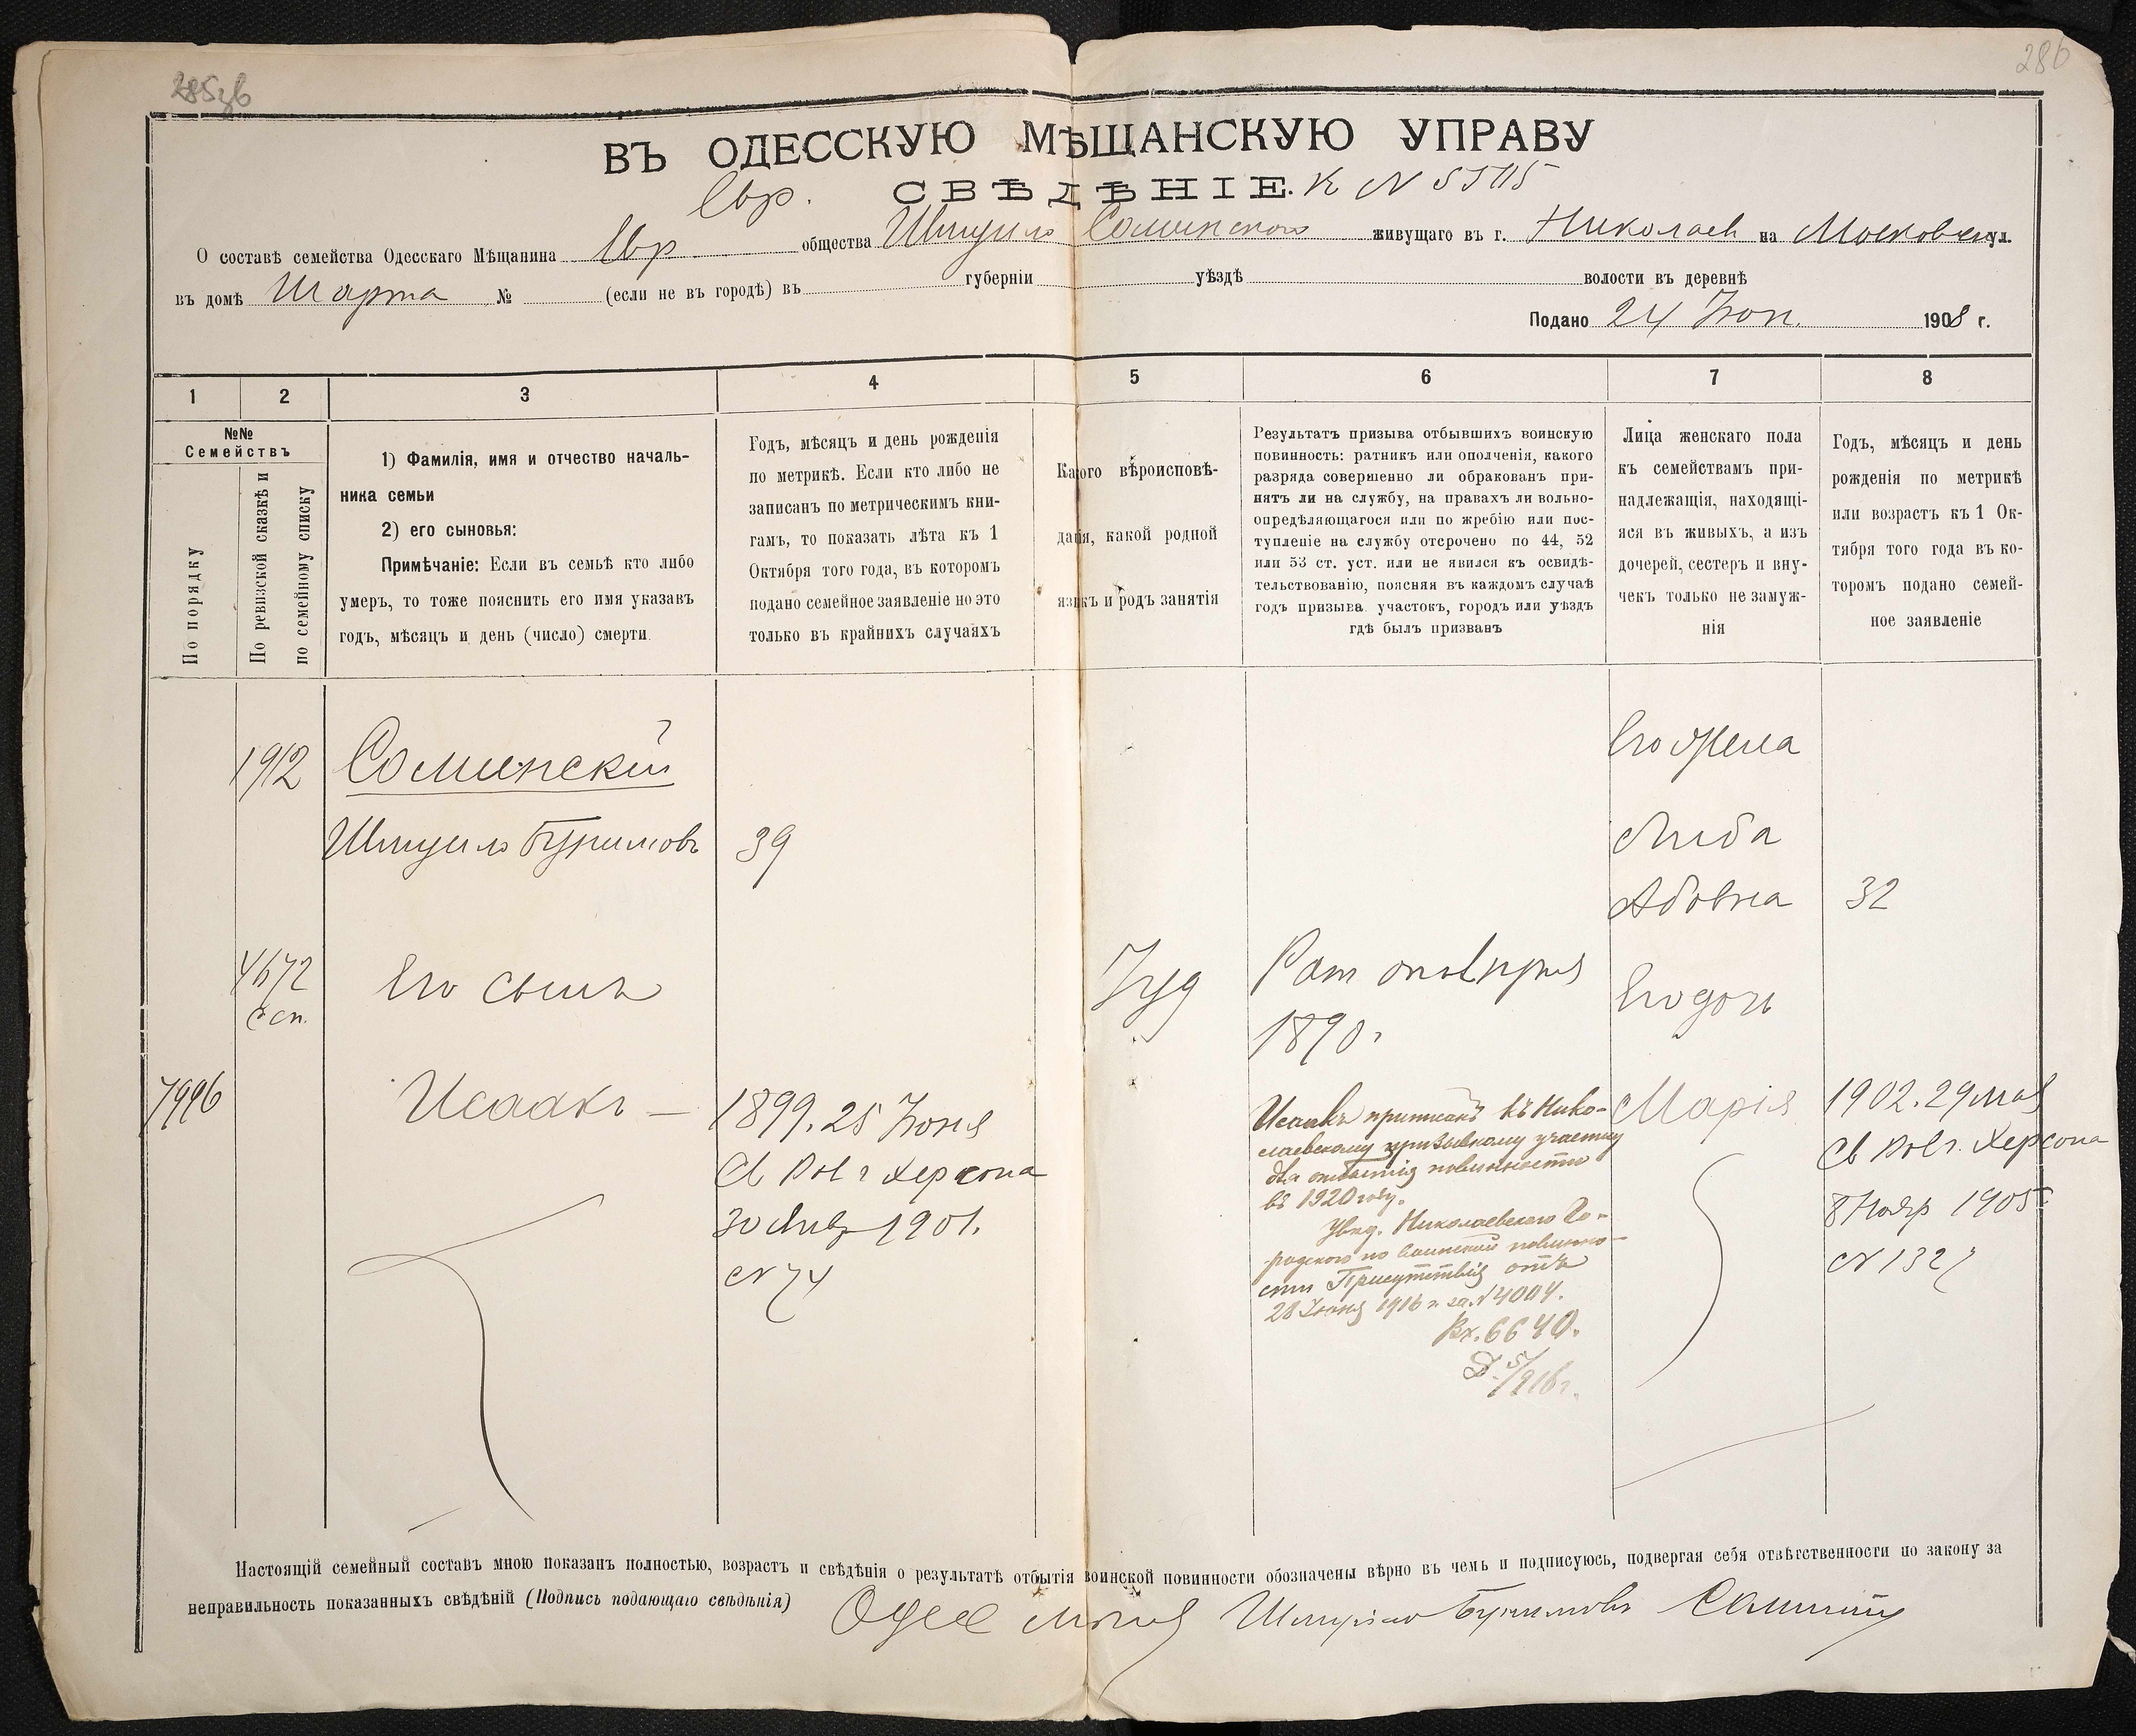 286
ВЪ ОДЕССКУЮ МѢЩАНСКУЮ УПРАВУ
Евр. СВѢДѢНІЕ. К N
О составѣ семейства Одесскаго Мѣщанина Евр общества Шмуило Соминского живущаго въ г. Николаев на Московской ул.
въ домѣ Шарта № (если не въ городѣ) въ губерніи уѣздѣ волости въ деревнѣ
Подано 24 Іюн. 1908 г.
1 2 3 4 5 6 7 8
№№
Семействъ
По порядку
По ревизской сказкѣ и
по семейному списку
1) Фамилія, имя и отчество началь-
ника семьи
2) его сыновья:
Примѣчаніе: Если въ семьѣ кто либо
умеръ, то тоже пояснить его имя указавъ
годъ, мѣсяцъ и день (число) смерти.
Годъ, мѣсяцъ и день рожденія
по метрикѣ. Если кто либо не
записанъ по метрическимъ кни-
гамъ, то показать лѣта къ 1
Октября того года, въ которомъ
подано семейное заявленіе но это
только въ крайнихъ случаяхъ
Какого вѣроисповѣ-
данія, какой родной
языкъ и родъ занятія
Результатъ призыва отбывшихъ воинскую
повинность: ратникъ или ополченія, какого
разряда совершенно ли обракованъ при-
нятъ ли на службу, на правахъ ли вольно-
опредѣляющагося или по жребію или пос-
тупленіе на службу отсрочено по 44, 52
или 53 ст. уст. или не явился къ освидѣ-
тельствованію, поясняя въ каждомъ случаѣ
годъ призыва участокъ, городъ или уѣздъ
гдѣ былъ призванъ
Лица женскаго пола
къ семействамъ при-
надлежащія, находящі-
яся въ живыхъ, а изъ
дочерей, сестеръ и вну-
чекъ только не замуж-
нія
Годъ, мѣсяцъ и день
рожденія по метрикѣ
или возрастъ къ 1 Ок-
тября того года въ ко-
торомъ подано семей-
ное заявленіе
1912
Соминскій
Шмуило Буримовъ
39
Его жена
Либа
Абовна
32
4672
с сп.
Его сынъ
Іуд
Рат опол
1890 г
Его дочь
7996
Исаакъ —
1899. 25 Іюня
Св Рав г Херсона
30 Янв 1901.
N 74
Исаакъ приписанъ къ Нико-
лаевскому призывному участку
для отбытія повинности
въ 1920 году.
Увед. Николаевскаго Го-
родского по воинской повинно-
сти Присутствія отъ
28 Іюня 1916 г. за N 4004.
Вх. 6640.
Марія
1902. 29 мая
Св Рав г. Херсона
8 Нояр 1905
N 1327
Настоящій семейный составъ мною показанъ полностью, возрастъ и свѣдѣнія о результатѣ отбытія воинской повинности обозначены вѣрно въ чемъ и подписуюсь, подвергая себя отвѣтственности по закону за
неправильность показанныхъ свѣдѣній (Подпись подающаго свѣдѣнія) Шмуило Буримовъ